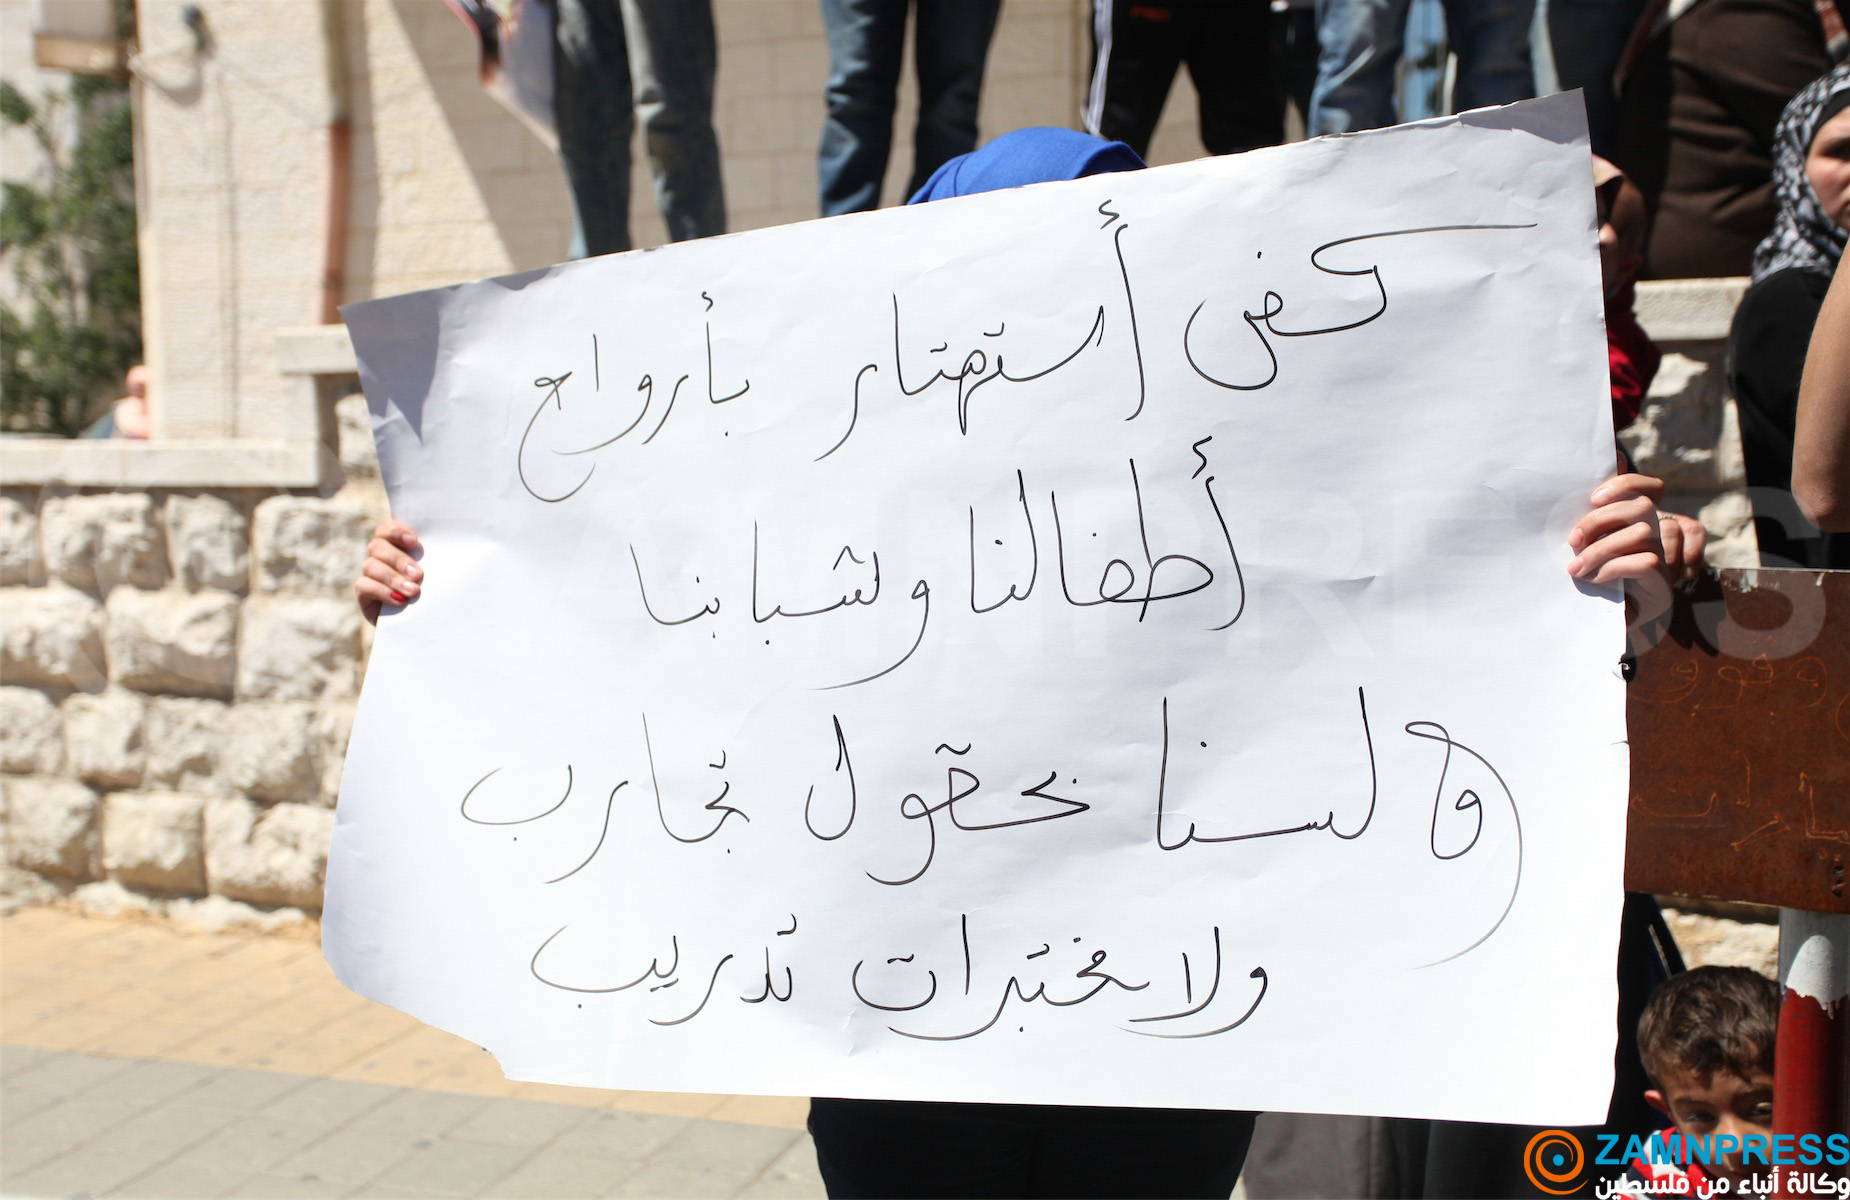 كفى أستهتار بأرواح
أطفالنا وشبابنا
ولسنا بحقول تجارب
ولا مختبرات تدريب
ZAMNPRESS
وكالة أنباء من فلسطين